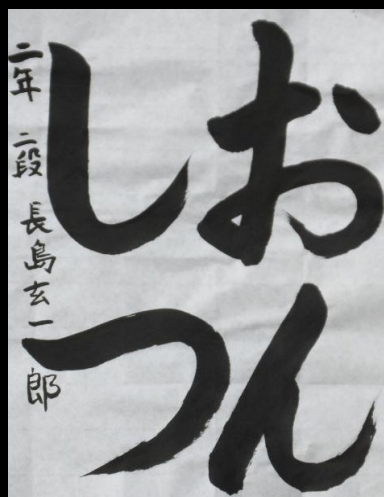 おん
しつ
二年 二段 長島玄一郎